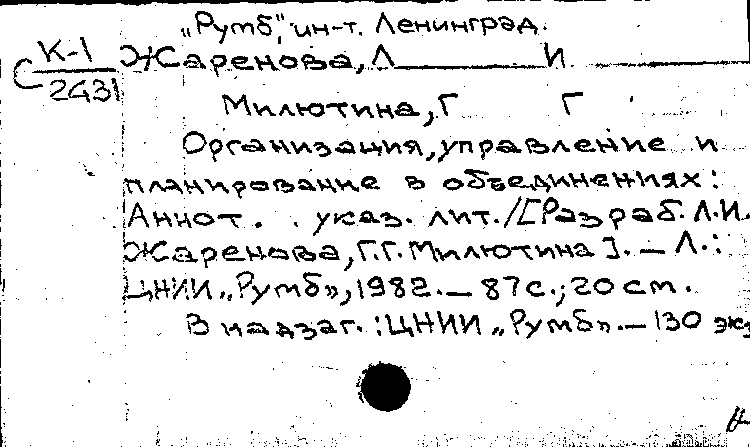 „Румб", ин-т. Ленинград.
С К-1
2431
Жаренова, Л И
Милютина, Г Г
Организация, управление и
планирование в объединениях:
Аннот. указ. лит./[Разраб. Л.И.
Жаренова, Г.Г. Милютина]. — Л.:
ЦНИИ „Румб", 1982. — 87с.; 20 см.
В надзаг.: ЦНИИ „Румб". — 130 экз